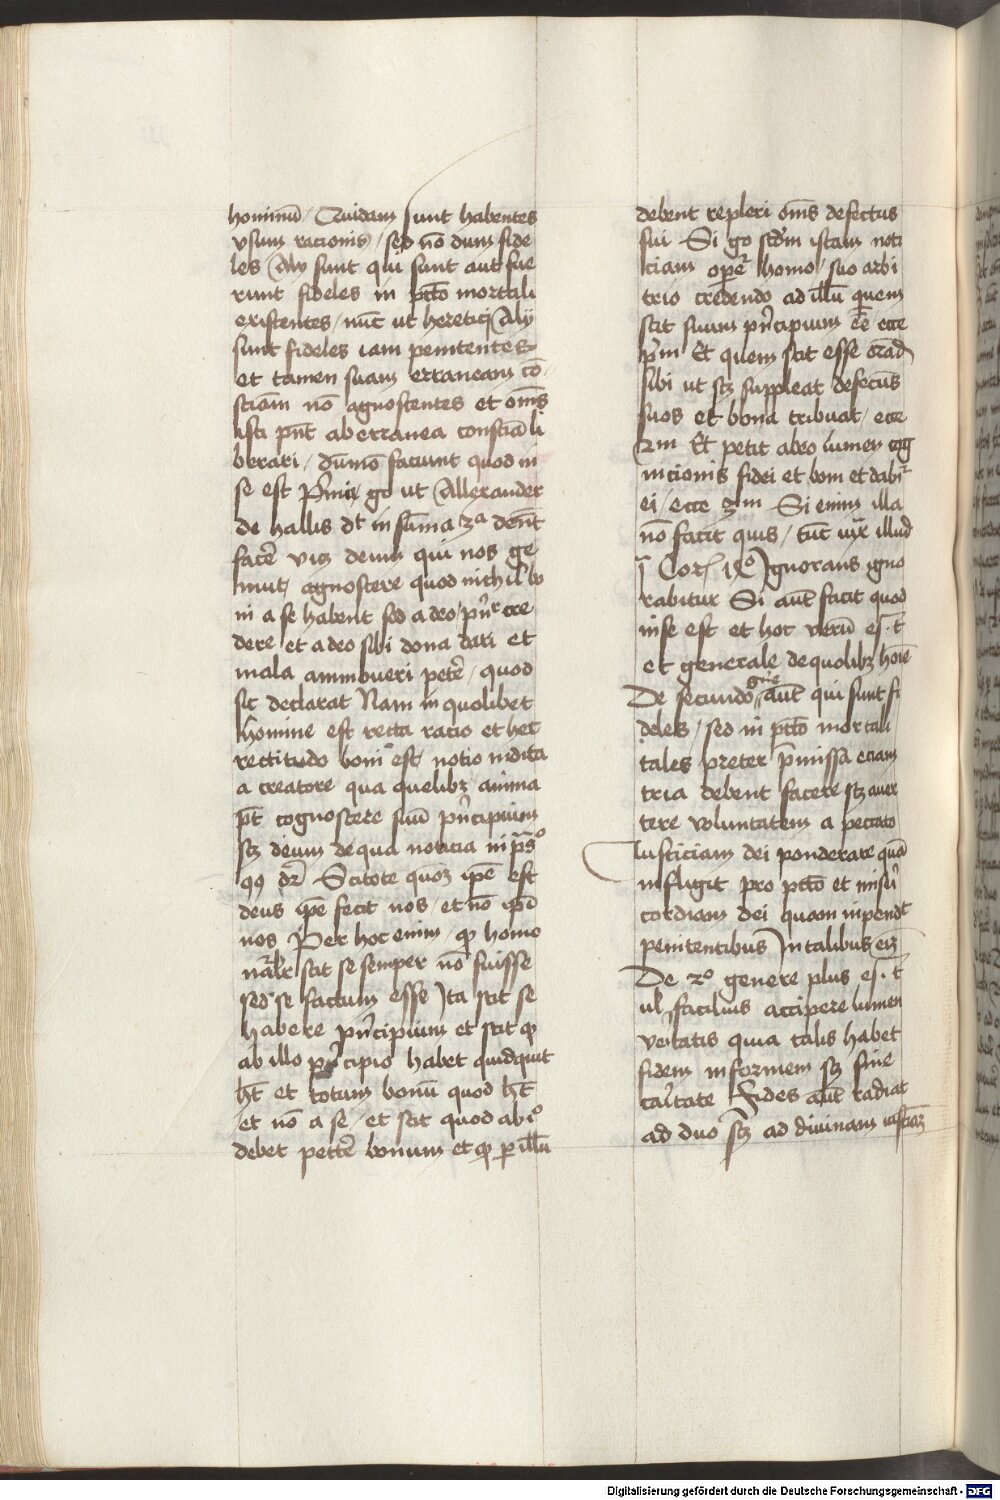 hominū / Quidam sunt habentes
vsum racionis / sed nō dum fide
les Alij sunt qui sunt aut fue
runt fideles in pctō mortali
existentes / nūc ut heretici Alij
sunt fideles iam penitentes
et tamen suam erraneam cō
sciam nō agnoscentes et oms̄
isti pn̄t ab erranea consciā li
berari / dūmō faciunt quod in
se est Primi go ut Allexander
de hallis dt in sūma 3a den̄t
facē viz deum qui nos ge
nuit agnoscere quod nichil bo
ni a se habent sed a deo / pn̄r cre
dere et a deo sibi dona dari et
mala ammoueri petē / quod
sic declarat Nam in quolibet
homine est recta racio et hec
rectitudo boni est notio indita
a creatore qua quelibz anima
pt̄ cognoscere suū pn̄cipium
scz deum de qua noticia in pso
99 dr̄ Scitote quōz ipē est
deus ipē fecit nos / et nō ipī
nos Per hoc enim / qp homo
nālr scit se semper nō fuisse
sed se factum esse Ita scit se
habere pn̄cipium et scit qp
ab illo pn̄cipio habet quidquit
ht̄ et totum bonū quod ht̄
et nō a se / et scit quod ab io
debet petē bonum et qp per illū
debent repleri oms̄ defectus
sui Si go scdm istam noti
ciam operet homo / suo arbi
trio credendo ad illū quem
scit suum pn̄cipium eē ecce
pm Et quem scit esse orād
sibi ut scz suppleat defectus
suos et bona tribuat / ecce
2m Et petit ab eo lumen cog
nicionis fidei et boni et dabir
ei / ecce 3m Si enim illa
nō facit quis / tūc iux illud
j Cor 14o Ignorans igno
rabitur Si aūt facit quod
in se est et hoc verū es. t
et generale de quolibz hoīe
De secundo gne aūt qui sunt fi
deles / sed in pctō mortali
tales preter pmissa eciam
tria debent facere scz auer
tere voluntatem a peccato
Iusticiam dei ponderare quā
infligit pro pctō et miseri
cordiam dei quam inpendt
penitentibus In talibus eiz
De 2o genere plus es. t
ul facilius accipere lumen
veritatis quia talis habet
fidem informem scz sine
caritate Fides aūt radiat
ad duo scz ad diuinam iusticiaz
Digitalisierung gefördert durch die Deutsche Forschungsgemeinschaft - DFG